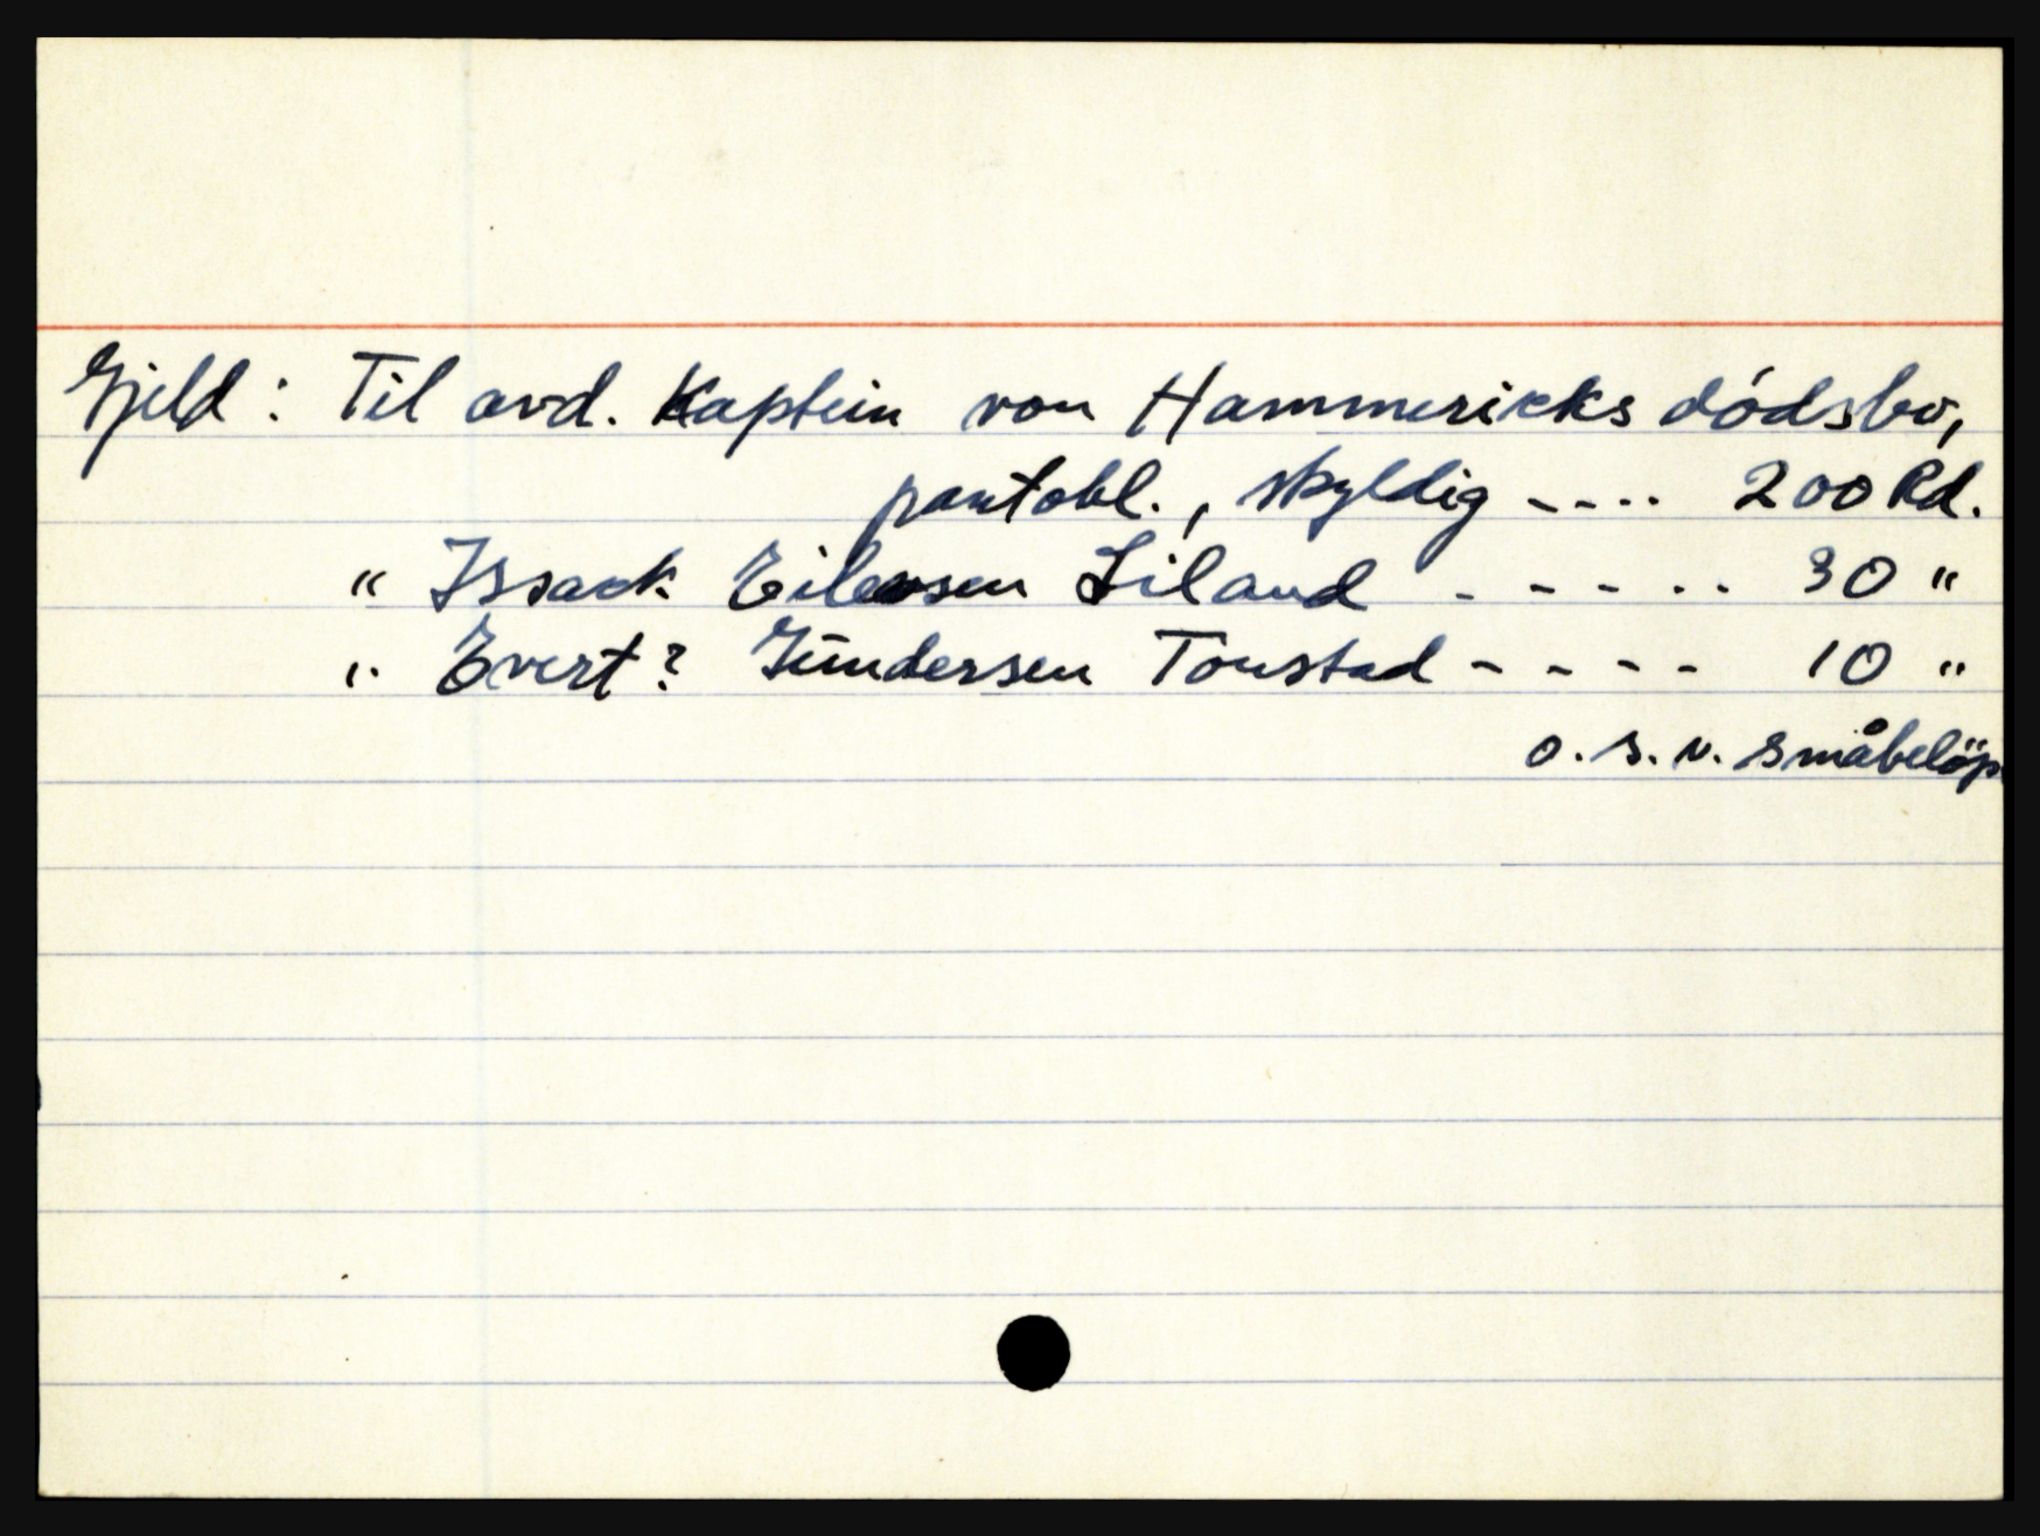 Gjeld: Til avd. Kaptein von Hammericks dódsbo,
pantobl., skyldig ---- 200 Rd.
" Issack Eilevsen Liland ----- 30 "
" Evert? Gūndersen Tonstad ---- 10 "
o.s.v. småbelöp